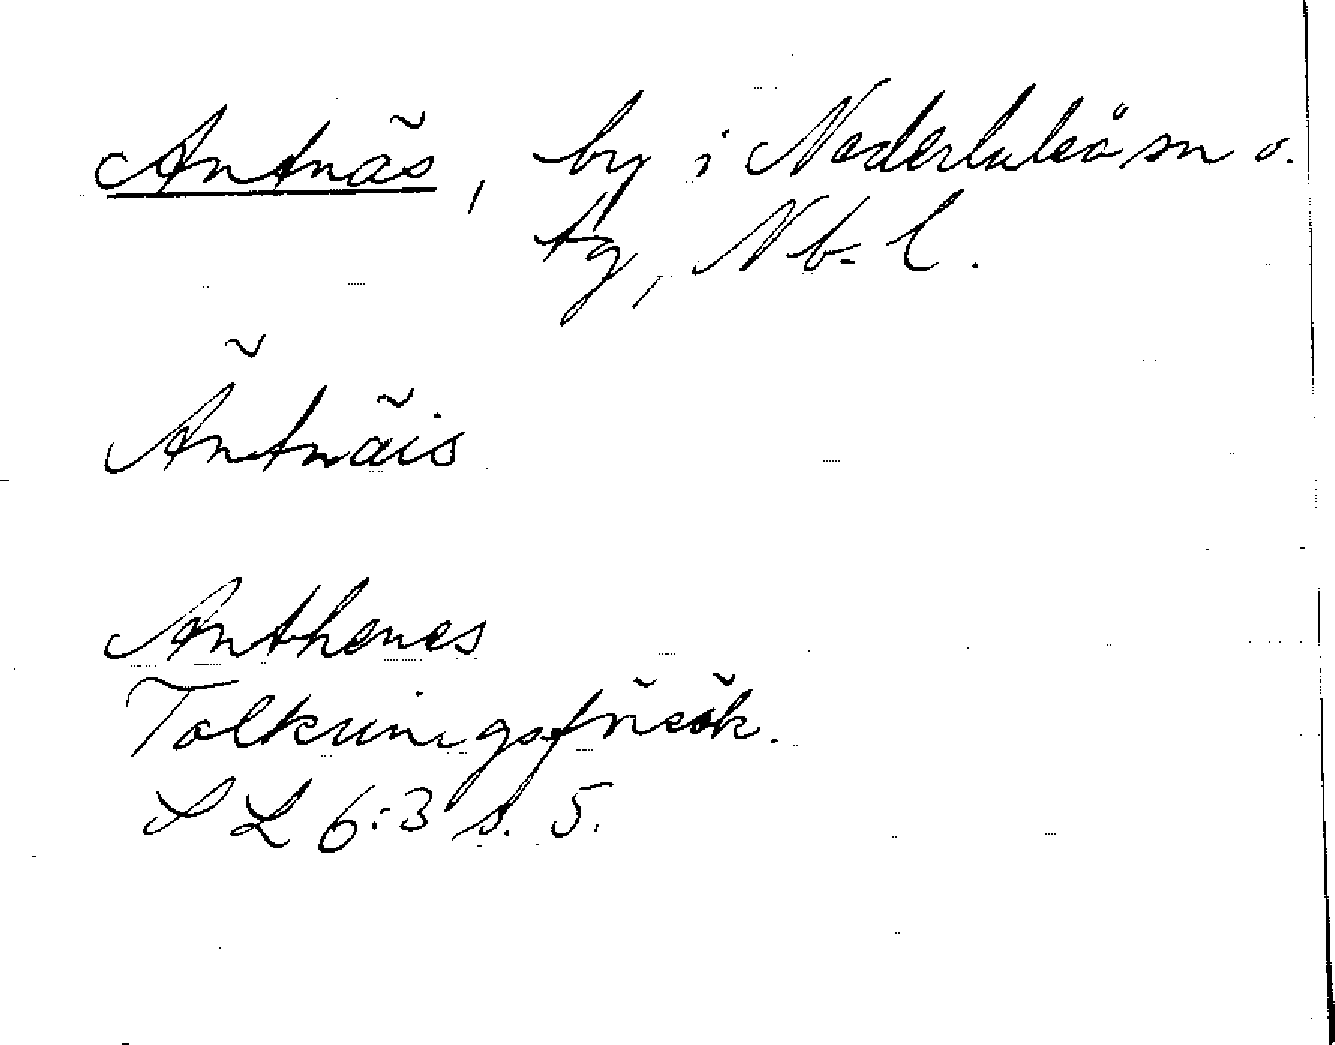 Antnäs, by i Nederluleå sn o.
tg, Nb. l.
Äntnäis
Anthenes
Tolkningsförsök.
S L 6:3 s. 5.